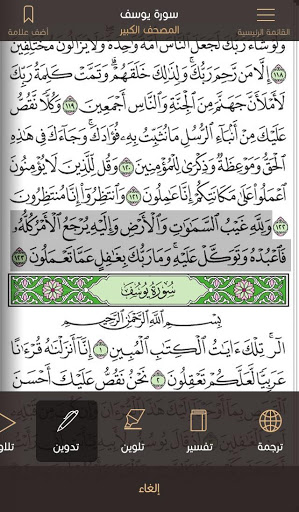 سورة يوسف
المصحف الكبير
القائمة الرئيسية
أضف علامة
وَلَوْ شَآءَ رَبُّكَ لَجَعَلَ ٱلنَّاسَ أُمَّةً وَٰحِدَةً وَلَا يَزَالُونَ مُخْتَلِفِينَ
١١٨ إِلَّا مَن رَّحِمَ رَبُّكَ وَلِذَٰلِكَ خَلَقَهُمْ وَتَمَّتْ كَلِمَةُ رَبِّكَ
لَأَمْلَأَنَّ جَهَنَّمَ مِنَ ٱلْجِنَّةِ وَٱلنَّاسِ أَجْمَعِينَ ١١٩ وَكُلًّا نَّقُصُّ
عَلَيْكَ مِنْ أَنۢبَآءِ ٱلرُّسُلِ مَا نُثَبِّتُ بِهِۦ فُؤَادَكَ وَجَآءَكَ فِي هَٰذِهِ
ٱلْحَقُّ وَمَوْعِظَةٌ وَذِكْرَىٰ لِلْمُؤْمِنِينَ ١٢٠ وَقُل لِّلَّذِينَ لَا يُؤْمِنُونَ
ٱعْمَلُوا۟ عَلَىٰ مَكَانَتِكُمْ إِنَّا عَٰمِلُونَ ١٢١ وَٱنتَظِرُوٓا۟ إِنَّا مُنتَظِرُونَ
١٢٢ وَلِلَّهِ غَيْبُ ٱلسَّمَٰوَٰتِ وَٱلْأَرْضِ وَإِلَيْهِ يُرْجَعُ ٱلْأَمْرُ كُلُّهُۥ
فَٱعْبُدْهُ وَتَوَكَّلْ عَلَيْهِ وَمَا رَبُّكَ بِغَٰفِلٍ عَمَّا تَعْمَلُونَ ١٢٣
سُورَةُ يُوسُفَ
بِسْمِ ٱللَّهِ ٱلرَّحْمَٰنِ ٱلرَّحِيمِ
الٓر تِلْكَ ءَايَٰتُ ٱلْكِتَٰبِ ٱلْمُبِينِ ١ إِنَّآ أَنزَلْنَٰهُ قُرْءَٰنًا
عَرَبِيًّا لَّعَلَّكُمْ تَعْقِلُونَ ٢ نَحْنُ نَقُصُّ عَلَيْكَ أَحْسَنَ
ترجمة
تفسير
تلوين
تدوين
إلغاء